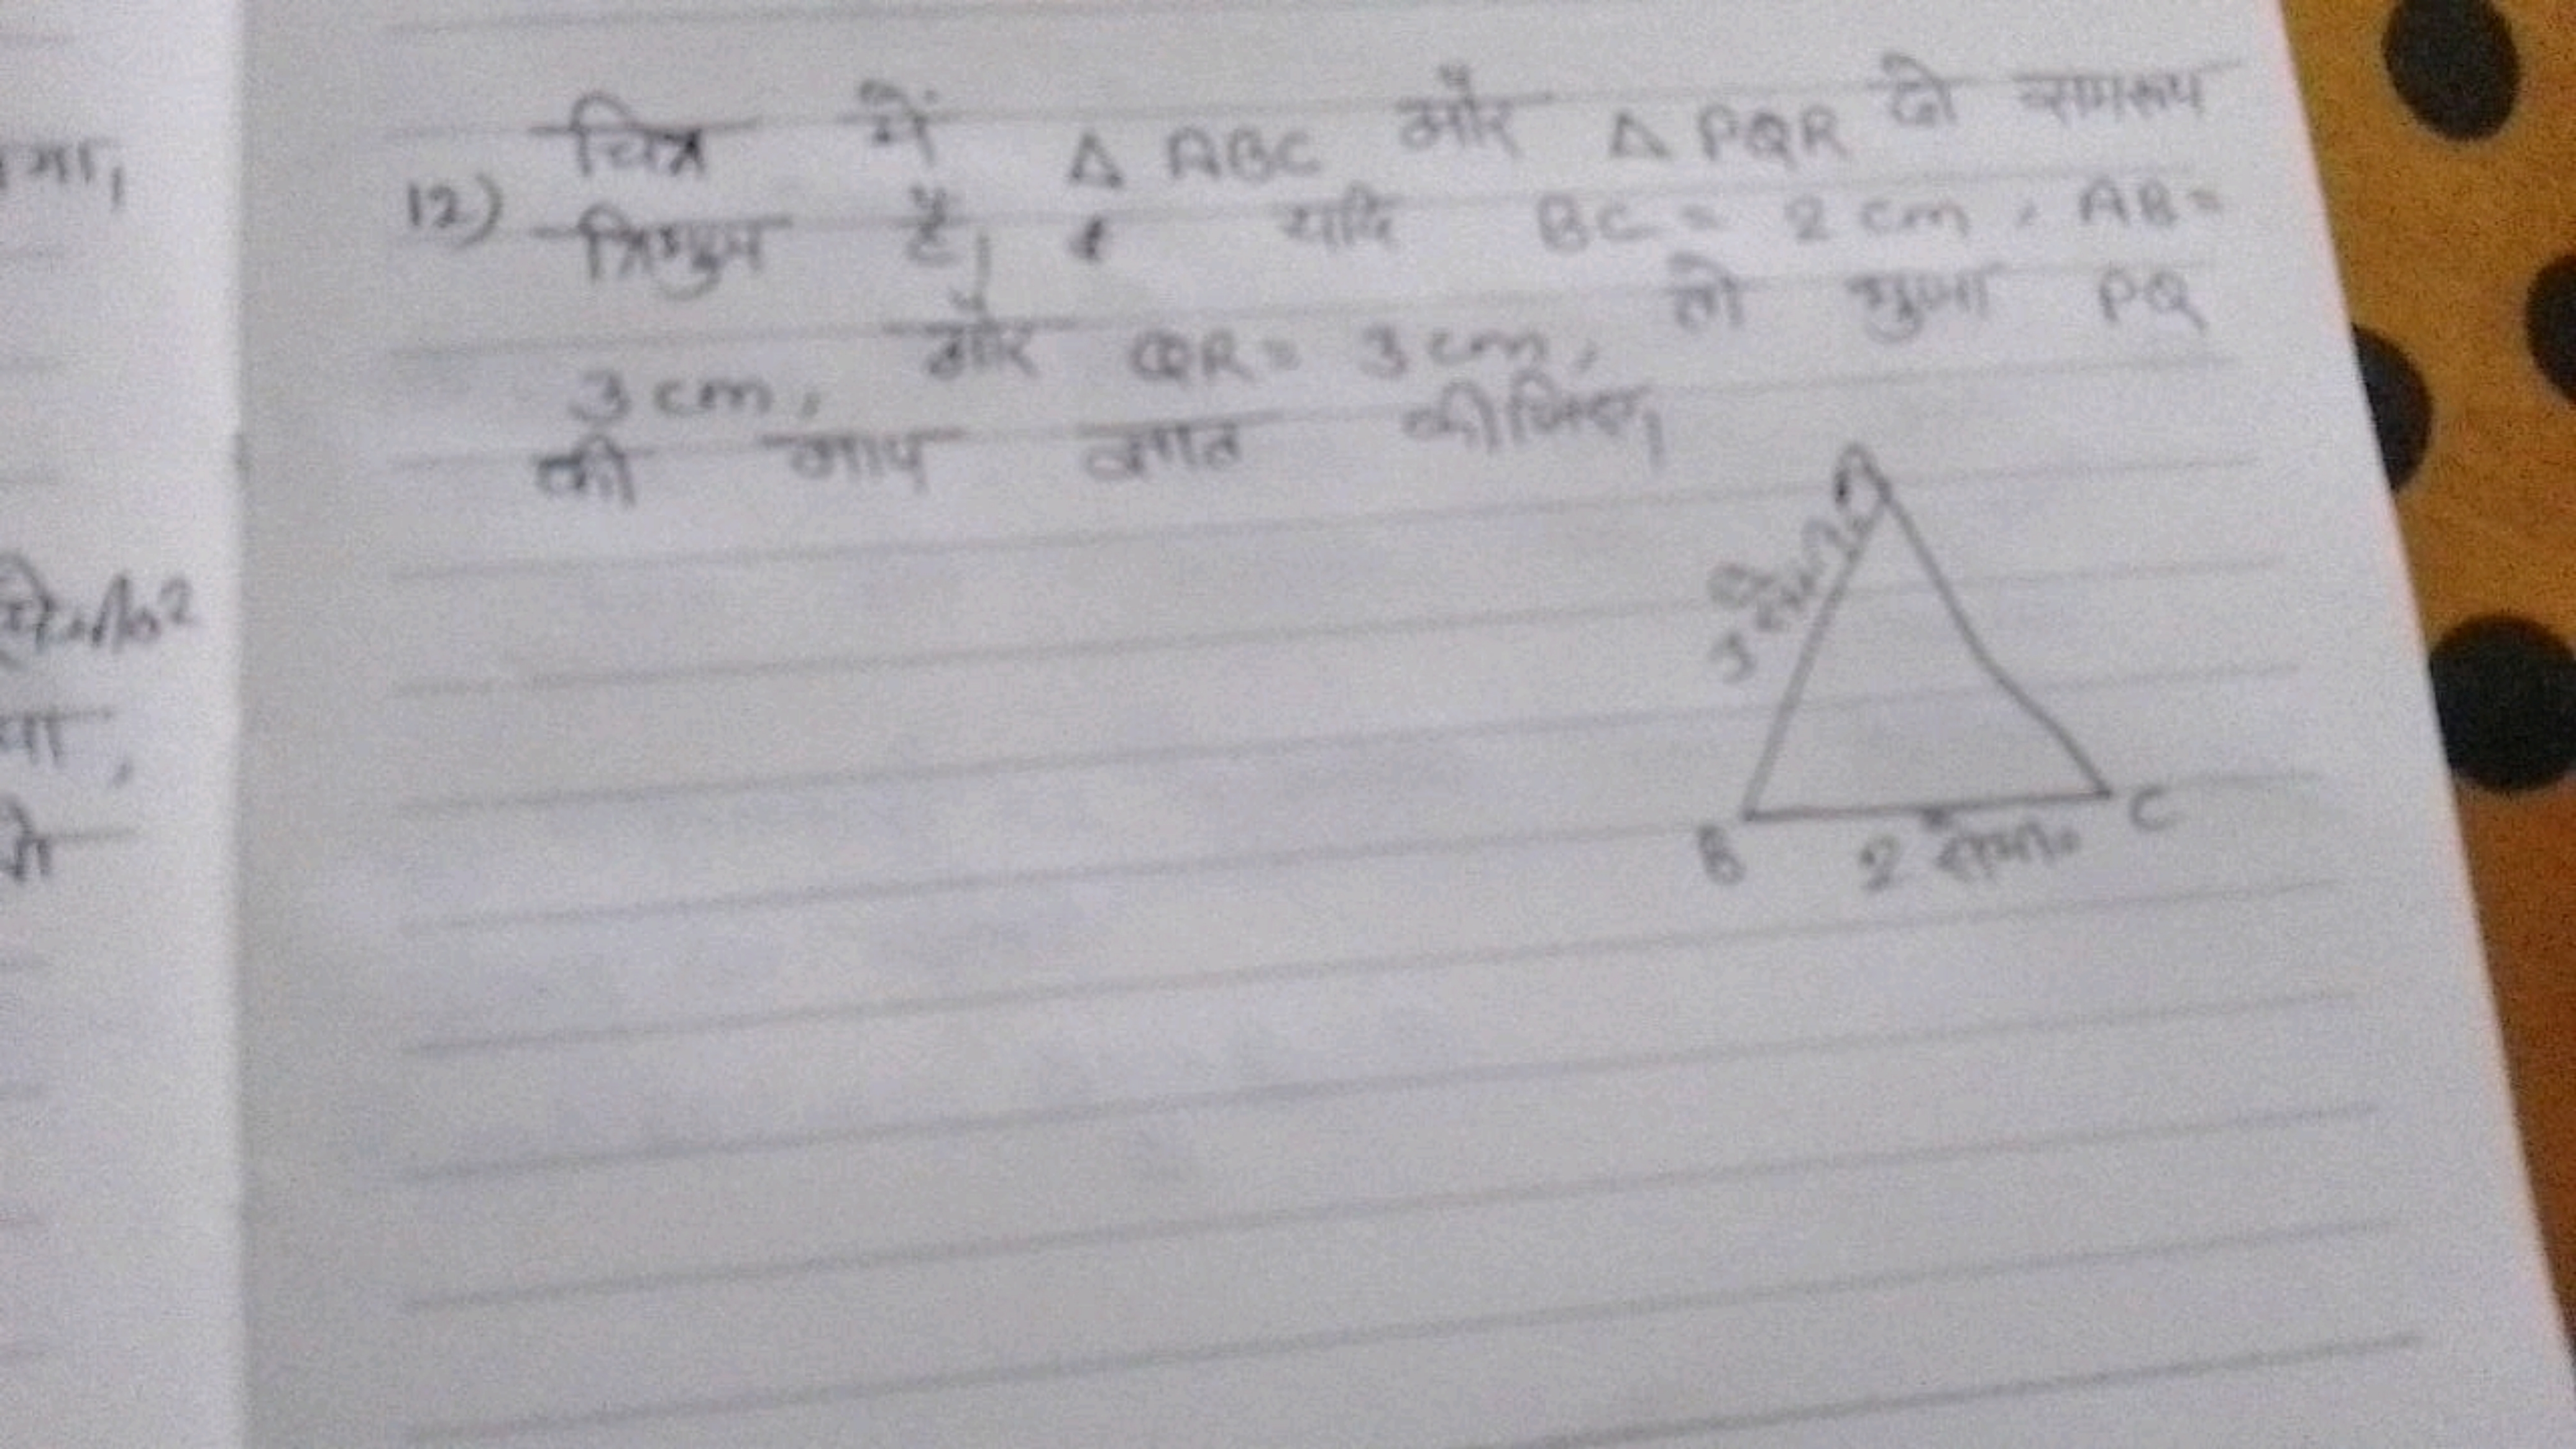 मा,
12) चित्र में Δ ABC और Δ PQR दो समरूप
त्रिभुज है। यदि BC = 2 cm, AB =
3 cm, और QR = 3 cm, तो भुजा PQ
की माप ज्ञात कीजिए।
3 सेमी०
B 2 सेमी० C